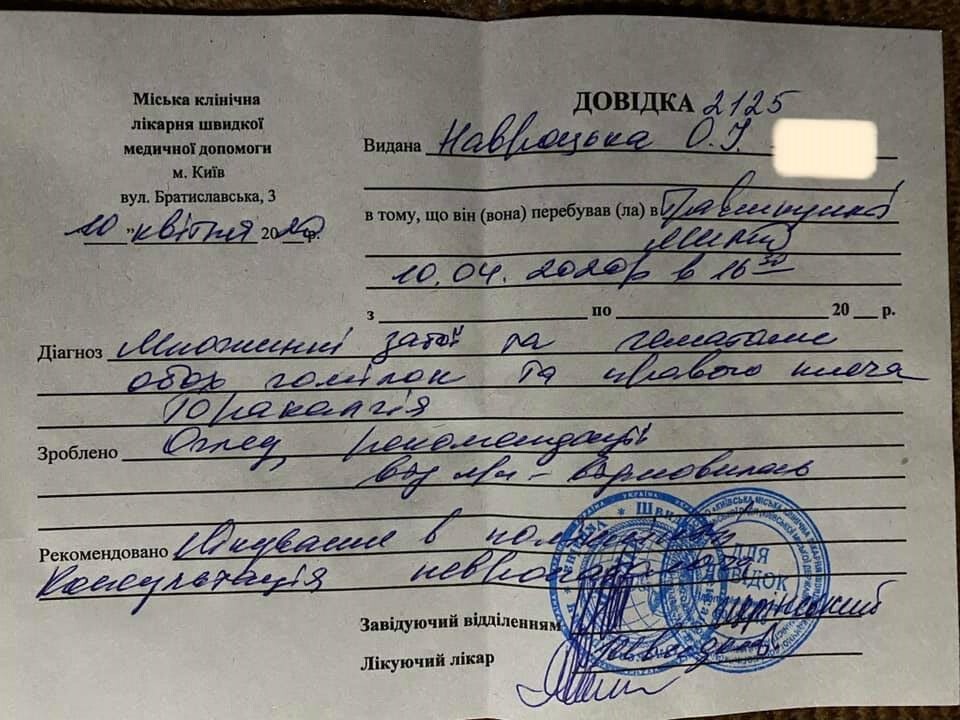 Міська клінічна
лікарня швидкої
медичної допомоги
м. Київ
вул. Братиславська, 3
10 " квітня 2020 р.
ДОВІДКА 2125
Видана Навроцька О.І.
в тому, що він (вона) перебував (ла) в
10.04.2020р в 16 30
з по 20 р.
Діагноз Множинні забої та гематоми
обох гомілок та правого плеча
Торакалгія
Зроблено Огляд, рекомендації
від - відмовилась
Рекомендовано Лікування в
Консультація
Завідуючий відділенням
Лікуючий лікар
УКРАЇНА
ДЛЯ
ДОВІДОК